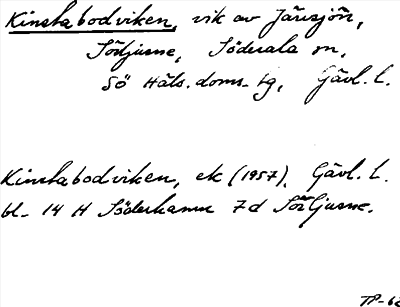 Kinstabodviken, vik av Järvsjön,
Söljusne, Söderala sn,
Sö Häls. doms. tg, Gävl. l.
Kinstabodviken, ek (1957), Gävl. l.
bl. 14 H Söderhamn 7d Sörljusne.